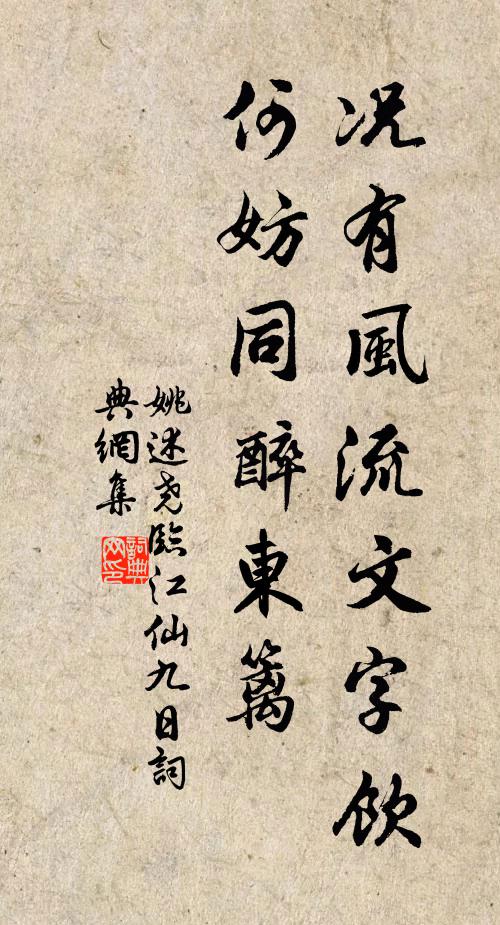 况有風流文字飲
何妨同醉東籬
姚述堯臨江仙九日詞
典網集
詞典网印